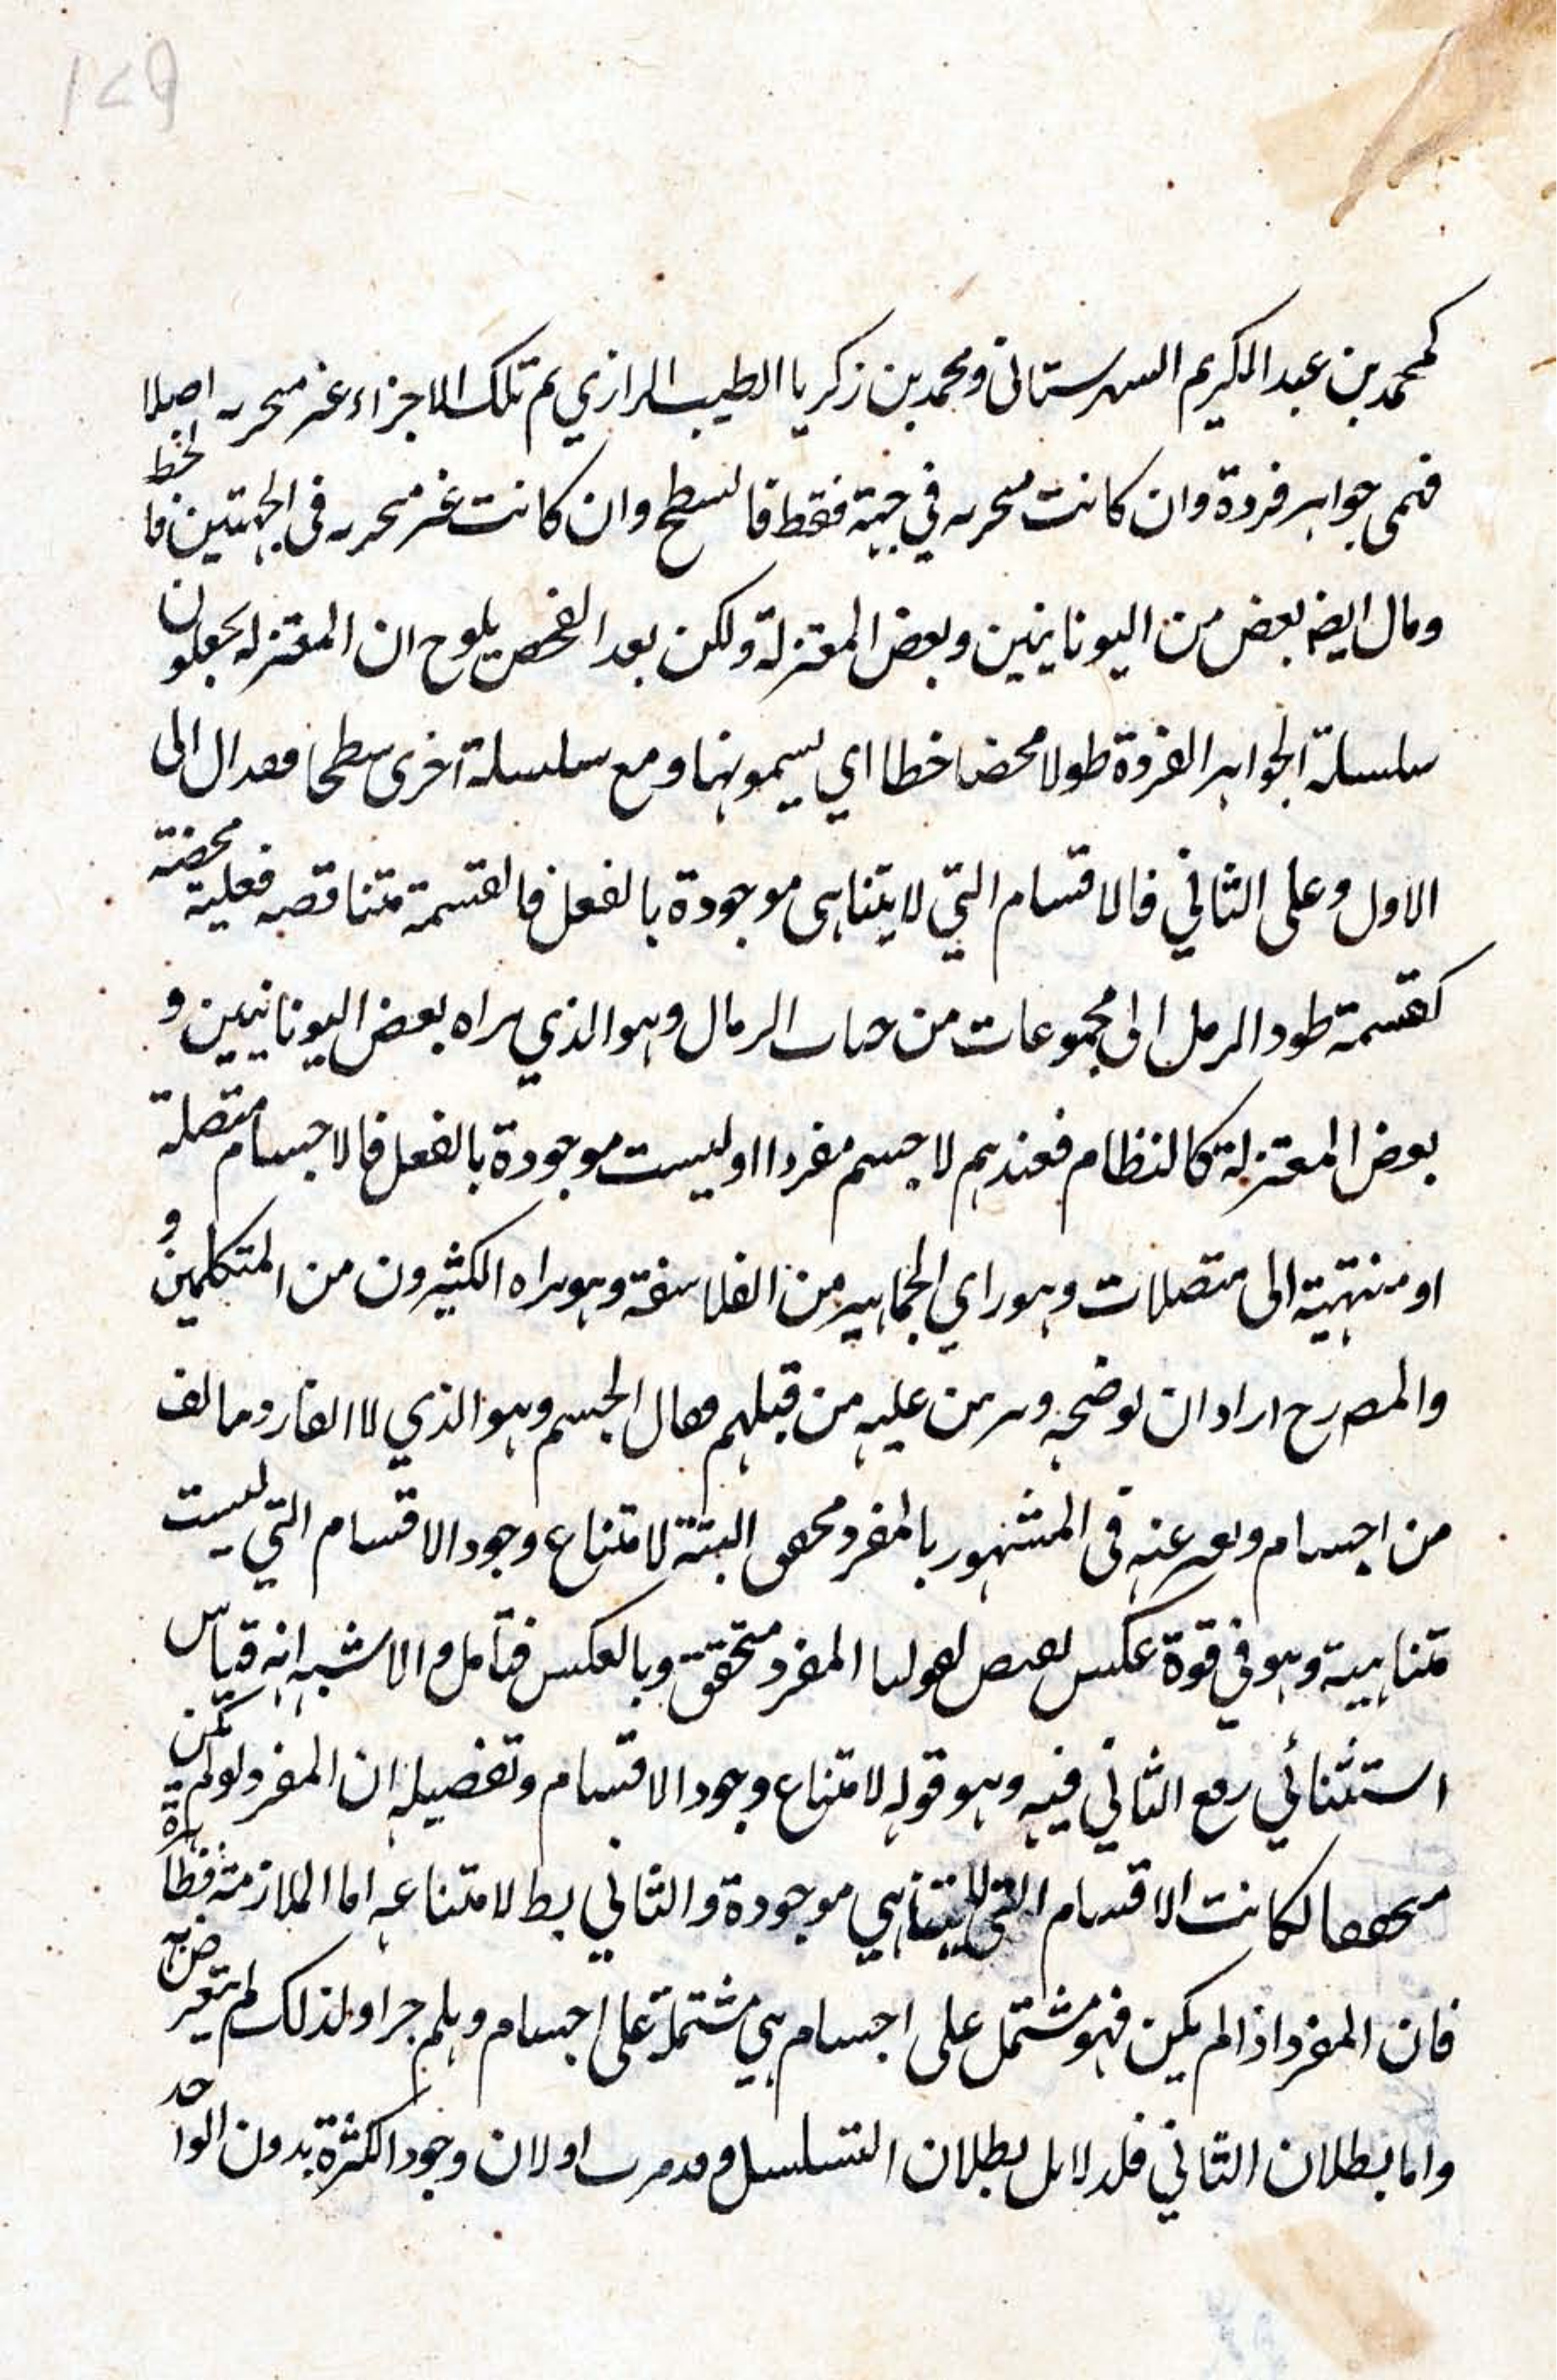 ١٤٩
كمحمد بن عبد الكريم الشهرستانى ومحمد بن زكريا الطبيب الرازي ثم تلك الاجزاء غير متجزية اصلا
فهى جواهر فردة وان كانت متجزية في جهة فقط فالسطح وان كانت غير متجزية فى الجهتين فالخط
ومال ايضه بعض من اليونانيين وبعض المعتزلة ولكن بعد الفحص يلوح ان المعتزله يجعلون
سلسلة الجواهر الفردة طولا محضا خطا اي يسمونها ومع سلسلة اخرى سطحا فقد ال الى
الاول وعلى الثاني فالاقسام التي لا يتناهى موجودة بالفعل فالقسمة متناقصه فعلية محضة
كقسمة طود الرمل الى مجموعات من حبات الرمال وهو الذي يراه بعض اليونانيين و
بعض المعتزلة كالنظام فعندهم لا جسم مفردا او ليست موجودة بالفعل فالاجسام متصلة
او منتهية الى متصلات وهو راي الجماهير من الفلاسفة وهو يراه الكثيرون من المتكلمين و
والمصرح اراد ان يوضحه ويبرهن عليه من قبلهم فقال الجسم وهو الذي لا
من اجسام ويعبر عنه فى المشهور بالمفرد محقق البتة لامتناع وجود الاقسام التي ليست
متناهية وهو في قوة عكس نقيض لقولنا المفرد متحقق وبالعكس فتأمل والاشبه انه قياس
استثنائي رفع الثاني فيه وهو قوله لامتناع وجود الاقسام وتفصيله ان المفرد لو لم يكن
متحققا لكانت الاقسام التي لا يتناهي موجودة والثاني بط لامتناعه اما الملازمة فظاهرة
فان المفرد اذا لم يكن فهو مشتمل على اجسام هي مشتملة على اجسام وهلم جرا ولذلك لم يتعرض به
واما بطلان الثاني فلدلايل بطلان التسلسل وقد مرت او لان وجود الكثرة بدون الواحد